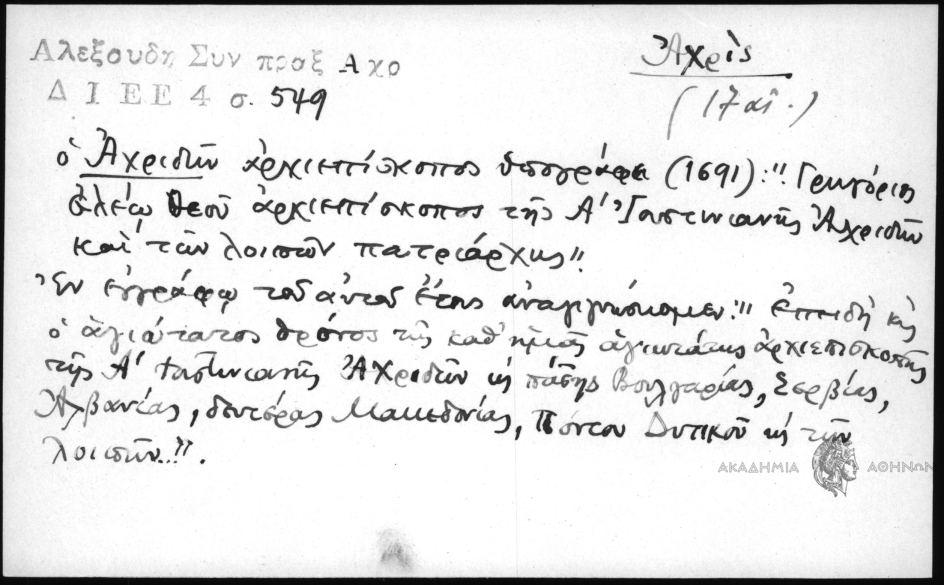 Αλεξουδη Συν πραξ Αχρ
Ἀχρὶς
ΔΙΕΕ 4 σ. 549
(17 αἰ.)
ὁ Ἀχριδῶν ἀρχιεπίσκοπος ὑπογράφει (1691): "Γρηγόριος
ἐλέῳ Θεοῦ ἀρχιεπίσκοπος τῆς Α' Ἰουστινιανῆς Ἀχριδῶν
καὶ τῶν λοιπῶν πατριάρχης".
Ἐν ἐγγράφῳ τοῦ αὐτοῦ ἔτους ἀναγιγνώσκομεν: "Ἐπειδὴ κὴ
ὁ ἁγιώτατος θρόνος τῆς καθ' ἡμᾶς ἁγιωτάτης ἀρχιεπισκοπῆς
τῆς Α' Ἰουστινιανῆς Ἀχριδῶν κὴ πάσης Βουλγαρίας, Σερβίας,
Ἀλβανίας, δευτέρας Μακεδονίας, Πόντου Δυτικοῦ κὴ τῶν
λοιπῶν..".
ΑΚΑΔΗΜΙΑ ΑΘΗΝΩΝ